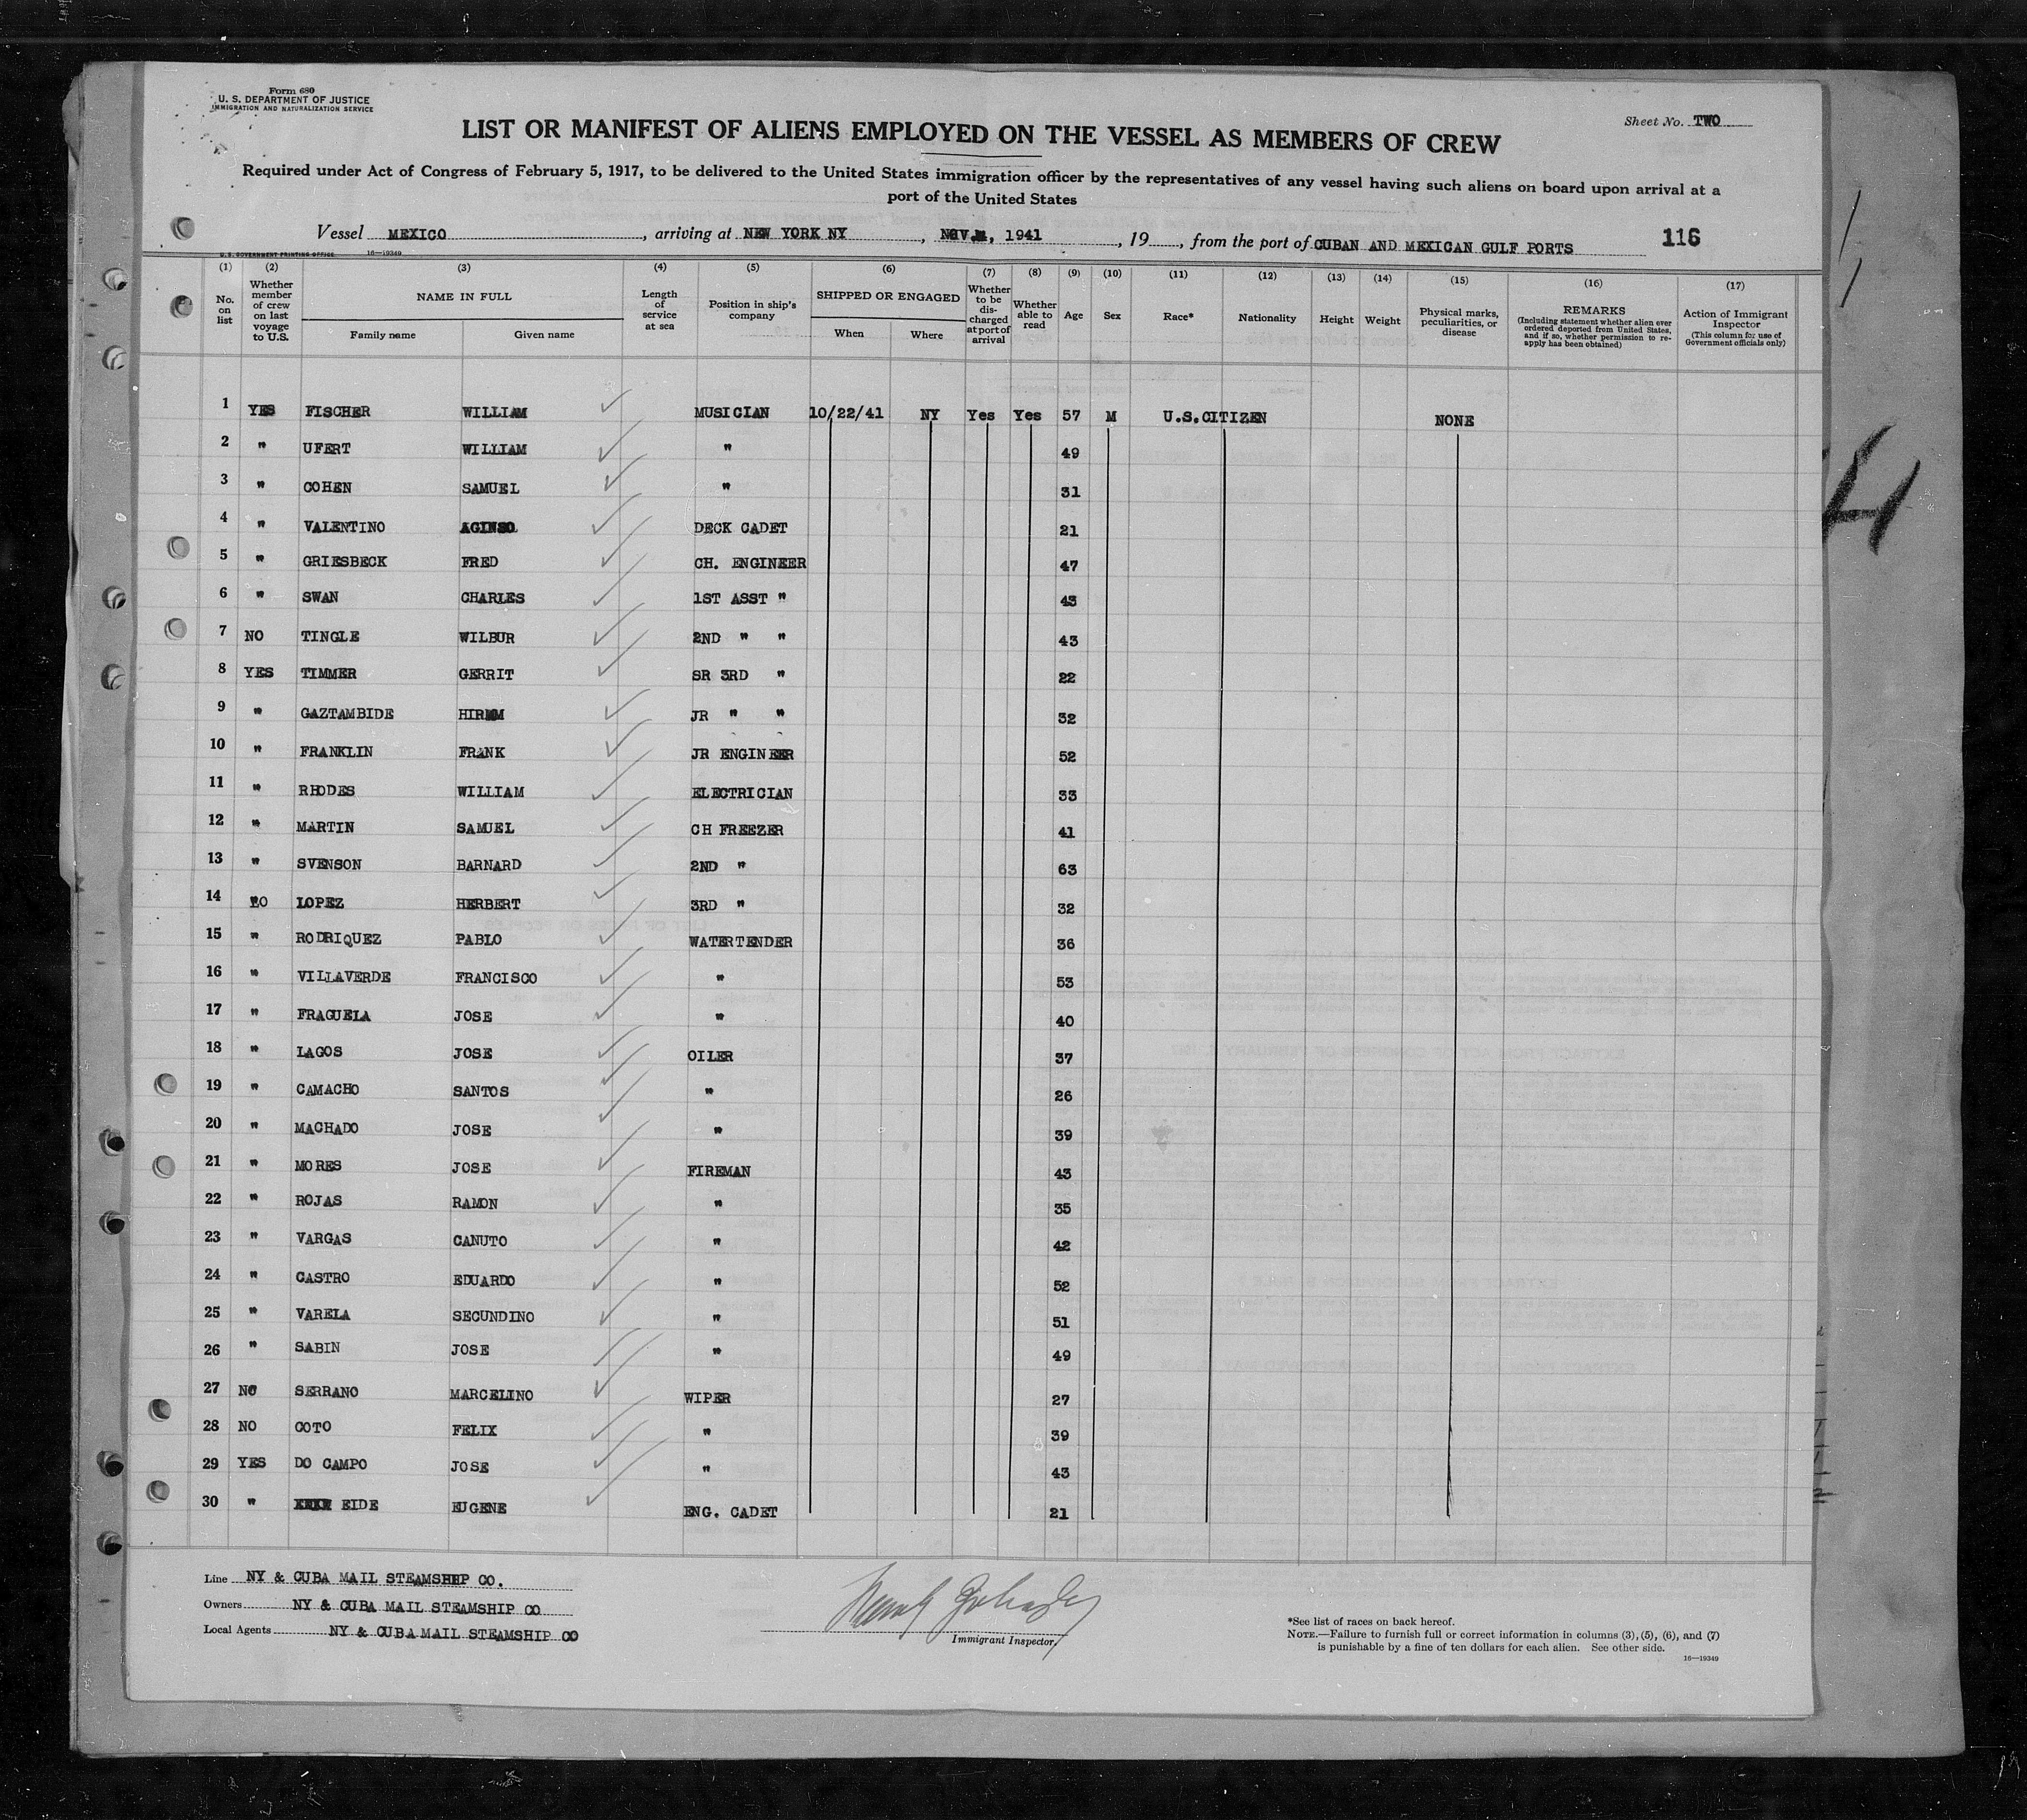 Form 680
U. S. DEPARTMENT OF JUSTICE
IMMIGRATION AND NATURALIZATION SERVICE
Sheet No. TWO
LIST OR MANIFEST OF ALIENS EMPLOYED ON THE VESSEL AS MEMBERS OF CREW
Required under Act of Congress of February 5, 1917, to be delivered to the United States immigration officer by the representatives of any vessel having such aliens on board upon arrival at a
port of the United States
Vessel MEXICO, arriving at NEW YORK NY, NOV. , 1941, 19, from the port of CUBAN AND MEXICAN GULF PORTS 116
U.S. GOVERNMENT PRINTING OFFICE 16—19349
(1) (2) (3) (4) (5) (6) (7) (8) (9) (10) (11) (12) (13) (14) (15) (16) (17)
No. on list
Whether member of crew on last voyage to U.S.
NAME IN FULL
Family name Given name
Length of service at sea
Position in ship's company
SHIPPED OR ENGAGED
When Where
Whether to be discharged at port of arrival
Whether able to read
Age
Sex
Race*
Nationality
Height
Weight
Physical marks, peculiarities, or disease
REMARKS
(Including statement whether alien ever ordered deported from United States, and if so, whether permission to reapply has been obtained)
Action of Immigrant Inspector
(This column for use of Government officials only)
1 YES FISCHER WILLIAM MUSICIAN 10/22/41 NY Yes Yes 57 M U.S.CITIZEN NONE
2 " UFERT WILLIAM " 49
3 " COHEN SAMUEL " 31
4 " VALENTINO DECK CADET 21
5 " GRIESBECK FRED CH. ENGINEER 47
6 " SWAN CHARLES 1ST ASST " 43
7 NO TINGLE WILBUR 2ND " " 43
8 YES TIMMER GERRIT SR 3RD " 22
9 " GAZTAMBIDE JR " " 32
10 " FRANKLIN FRANK JR ENGINEER 52
11 " RHODES WILLIAM ELECTRICIAN 33
12 " MARTIN SAMUEL CH FREEZER 41
13 " SVENSON BARNARD 2ND " 63
14 LOPEZ HERBERT 3RD " 32
15 " RODRIQUEZ PABLO WATERTENDER 36
16 " VILLAVERDE FRANCISCO " 53
17 " FRAGUELA JOSE " 40
18 " LAGOS JOSE OILER 37
19 " CAMACHO SANTOS " 26
20 " MACHADO JOSE " 39
21 " MORES JOSE FIREMAN 43
22 " ROJAS RAMON " 35
23 " VARGAS CANUTO " 42
24 " CASTRO EDUARDO " 52
25 " VARELA SECUNDINO " 51
26 " SABIN JOSE " 49
27 NO SERRANO MARCELINO WIPER 27
28 NO COTO FELIX " 39
29 YES DO CAMPO JOSE " 43
30 " EIDE EUGENE ENG. CADET 21
Line NY & CUBA MAIL STEAMSHIP CO.
Owners NY & CUBA MAIL STEAMSHIP CO
Local Agents NY & CUBA MAIL STEAMSHIP CO
Immigrant Inspector
*See list of races on back hereof.
NOTE.—Failure to furnish full or correct information in columns (3), (5), (6), and (7)
is punishable by a fine of ten dollars for each alien. See other side.
16—19349